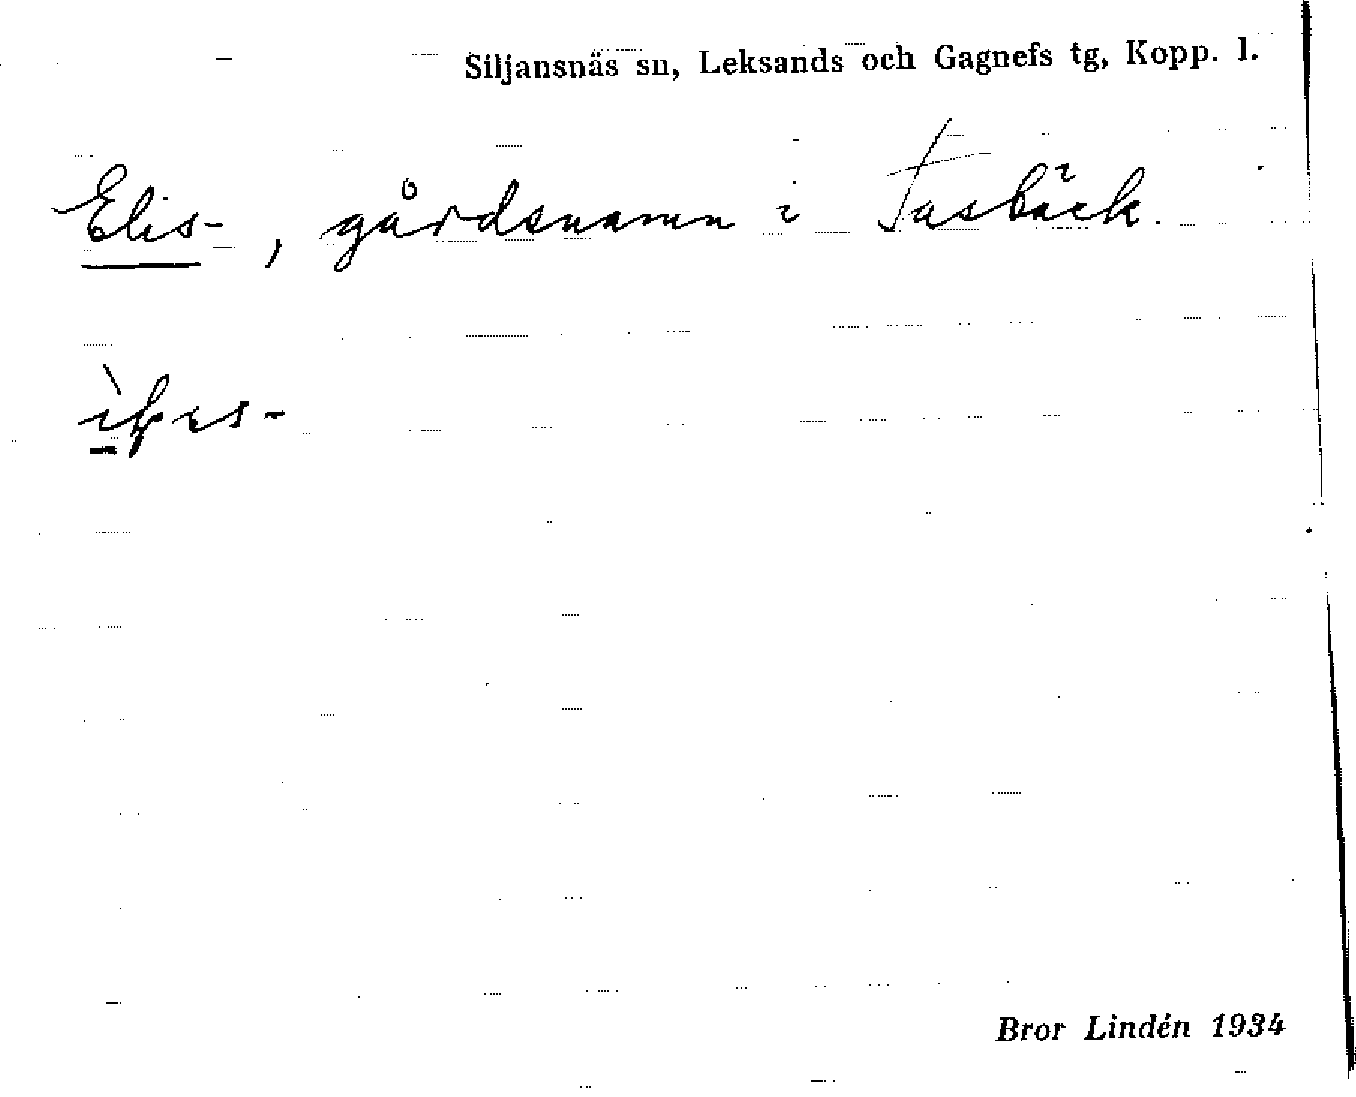 Siljansnäs sn, Leksands och Gagnefs tg, Kopp. l.
Elis-, gårdsnamn i Fasbäck.
Bror Lindén 1934